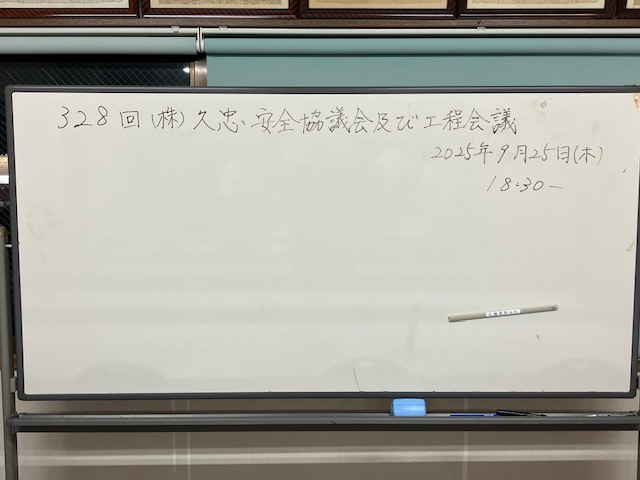 328回(株)久忠 安全協議会及び工程会議
2025年9月25日(木)
18:30ー